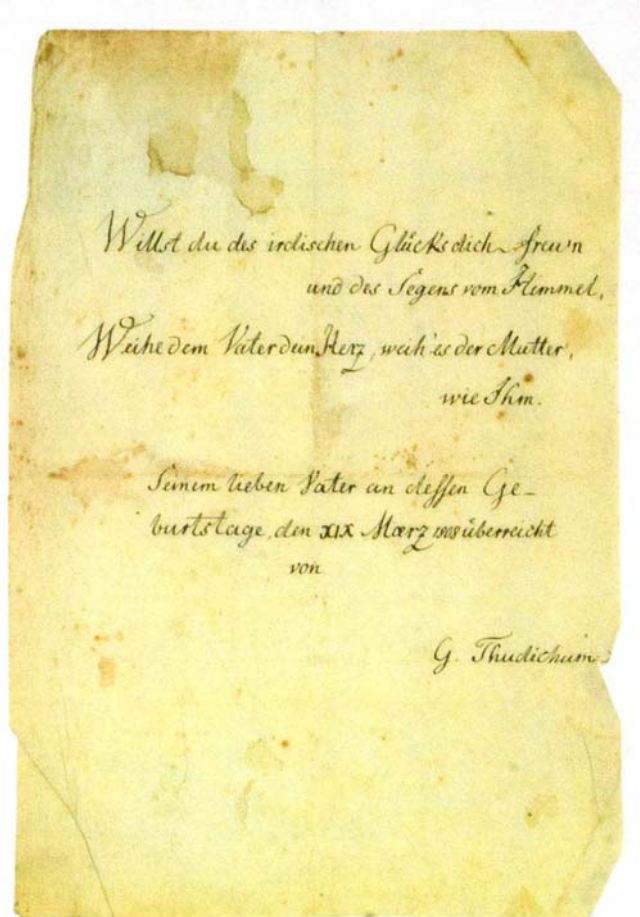 Willst du des irdischen Glücks dich freu'n
und des Segens vom Himmel,
Weihe dem Vater dein Herz, weih' es der Mutter,
wie Ihm.
Seinem lieben Vater an dessen Ge-
burtstage, den XIX Mærz 1808 überreicht
von
G. Thudichum